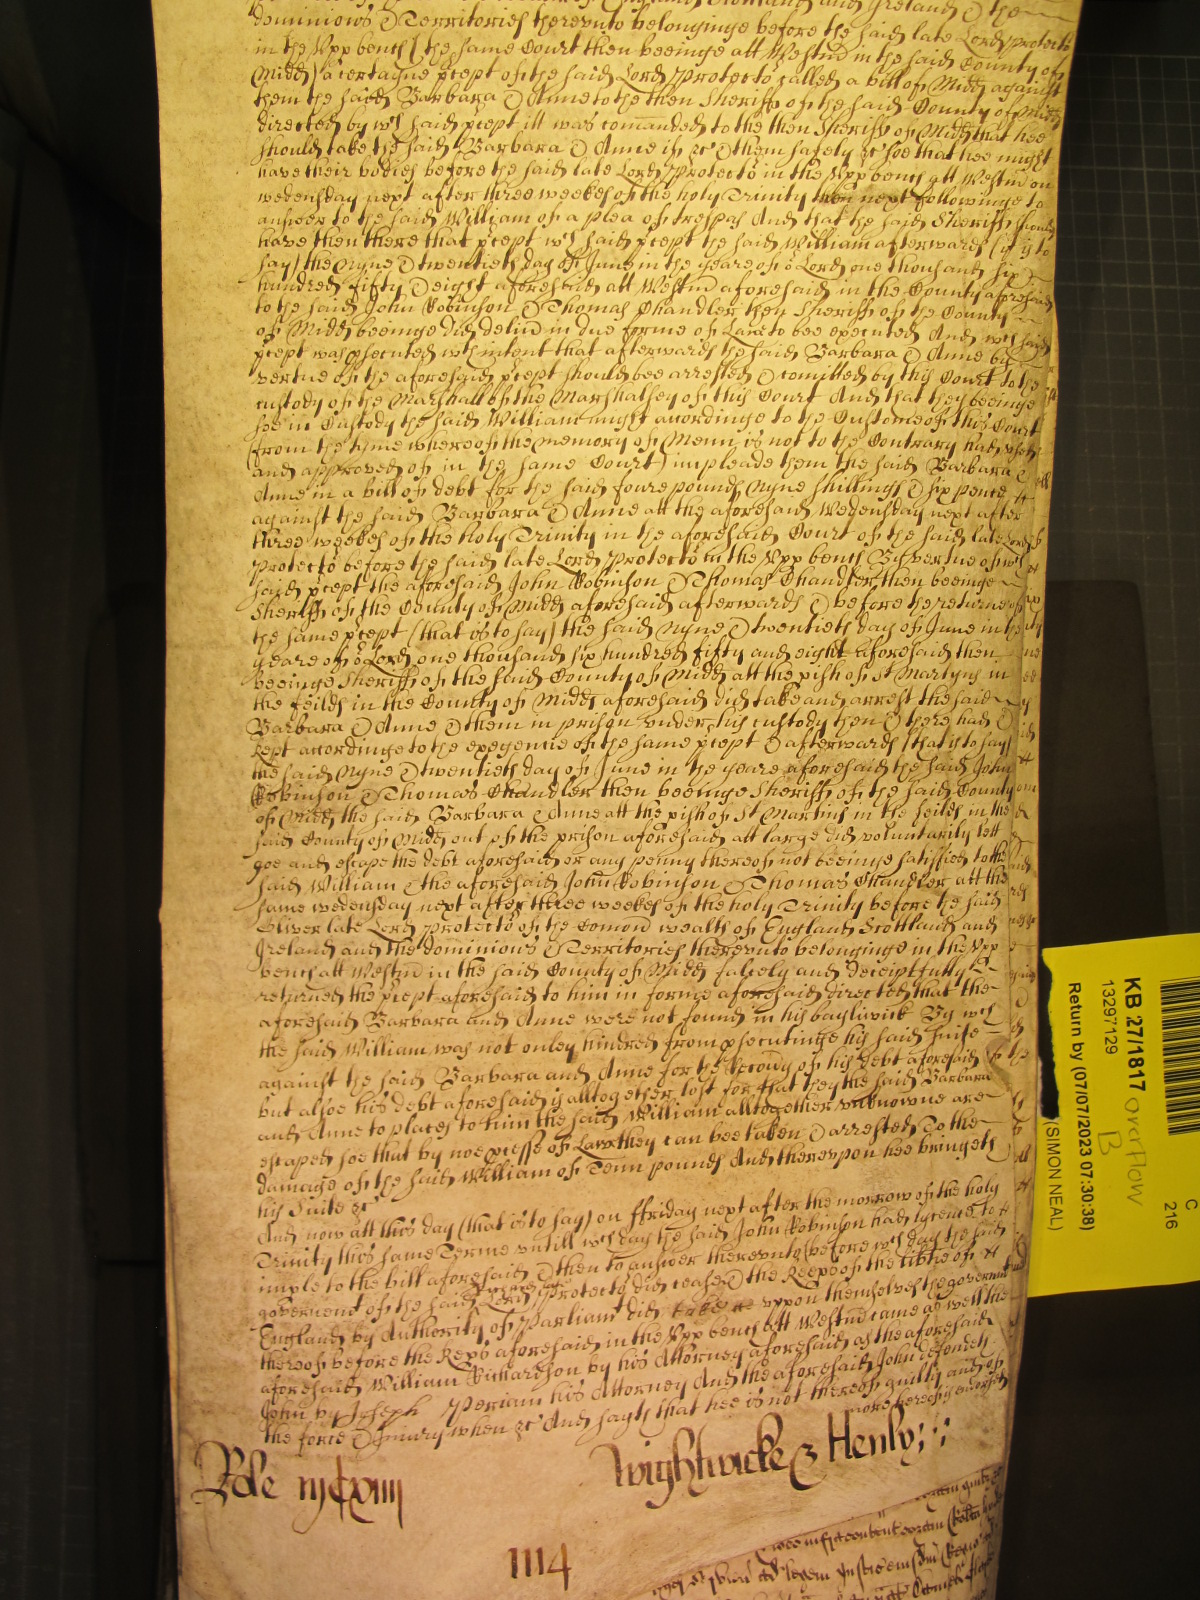 dominions & Territories therevnto belonginge before the said late Lord protecto
in the Vpp bench (the same Court then beeinge att Westm in the said County of
Midd) a certayne pcept of the said Lord Protecto called a bill of Midd against
them the said Barbara & Anne to the then Sheriff of the said County of Midd
directed by wch said pcept itt was comanded to the then Sheriff of Midd that hee
should take the said Barbara & Anne if &c & them safely &c soe that hee might
have their bodies before the said late Lord Protecto in the Vpp bench att Westm on
wedensday next after three weekes of the holy Trinity then next followinge to
answer to the said William of a plea of trespas And that the said Sheriff should
have then there that pcept wch said pcept the said William afterwards (that is to
say) the Nyne & twentieth day of June in the yeare of o Lord one thousand six
hundred fifty & eight aforesaid att Westm aforesaid in the County aforesaid
to the said John Robinson & Thomas Chandler they Sheriff of the County
of Midd beeinge did deliu in due forme of Law to bee executed And wch said
pcept was psecuted wth intent that afterwards the said Barbara & Anne by
vertue of the aforesaid pcept should bee arrested & comitted by this Court to the
custody of the Marshall of the Marshalsey of this Court And that they beeinge
soe in Custody the said William might accordinge to the Custome of this Court
(from the tyme whereof the memory of Menn is not to the Contrary had vsed
and approved of in the same Court) impleade them the said Barbara &
Anne in a bill of debt for the said foure pounds Nyne shillings & six pence
against the said Barbara & Anne att the aforesaid Wedensday next after
three weekes of the holy Trinity in the aforesaid Court of the said late Lord
Protecto before the said late Lord Protecto in the Vpp bench By vertue of wch
said pcept the aforesaid John Robinson & Thomas Chandler then beeinge
Sheriff of the County of Midd aforesaid afterwards & before the returne of
the same pcept (that is to say) the said Nyne & twentieth day of June in the
yeare of o Lord one thousand six hundred fifty and eight aforesaid then
beeinge Sheriff of the said County of Midd att the pish of St Martyns in
the feilds in the County of Midd aforesaid did take and arrest the said
Barbara & Anne & them in prison vnder his custody then & there had &
kept accordinge to the exegencie of the same pcept & afterwards (that is to say)
the said Nyne & twentieth day of June in the yeare aforesaid the said John
Robinson & Thomas Chandler then beeinge Sheriff of the said County
of Midd the said Barbara & Anne att the pish of St Martins in the feilds in the
said County of Midd out of the prison aforesaid att large did voluntarily lett
goe and escape the debt aforesaid or any penny thereof not beeinge satisfied to the
said William & the aforesaid John Robinson & Thomas Chandler att the
same wedensday next after three weekes of the holy Trinity before the said
Oliver late Lord Protecto of the Comon wealth of England Scottland and
Ireland and the dominions & Territories therevnto belonginge in the Vpp
bench att Westm in the said County of Midd falsely and deceiptfully
returned the pcept aforesaid to him in forme aforesaid directed that the
aforesaid Barbara and Anne were not found in his bayliwick By wch
the said William was not onley hindred from psecutinge his said suite
against the said Barbara and Anne for the Recouy of his debt aforesaid
but alsoe his debt aforesaid is alltogether lost for that they the said Barbara
and Anne to places to him the said William alltogether vnknowne are
escaped soe that by noe pcesse of Law they can bee taken & arrested To the
damage of the said William of Tenn pounds And therevpon hee bringeth
his Suite &c
And now att this day (that is to say) on ffriday next after the morrow of the holy
Trinity this same Terme vntill wch day the said John Robinson had lycence to
imple to the bill aforesaid & then to answer therevnto (before wch day the said
governent of the said Lord Protecto did cease & the Keeps of the libtie of
England by Authority of Parliamt did take vppon themselves the governmt
thereof before the Keps aforesaid in the Vpp bench att Westm came as well the
aforesaid William Richardson by his Attorney aforesaid as the aforesaid
John by Joseph Periam his Attorney And the aforesaid John defendeth
the force & Iniury when &c And sayth that hee is not thereof guilty and of
more hereof is endorsed
Role mcxiiii
Wightwicke & Henly
1114
KB 27/1817 overflow
B
13297129
Return by (07/07/2023 07:30:38)
(SIMON NEAL)
C
216